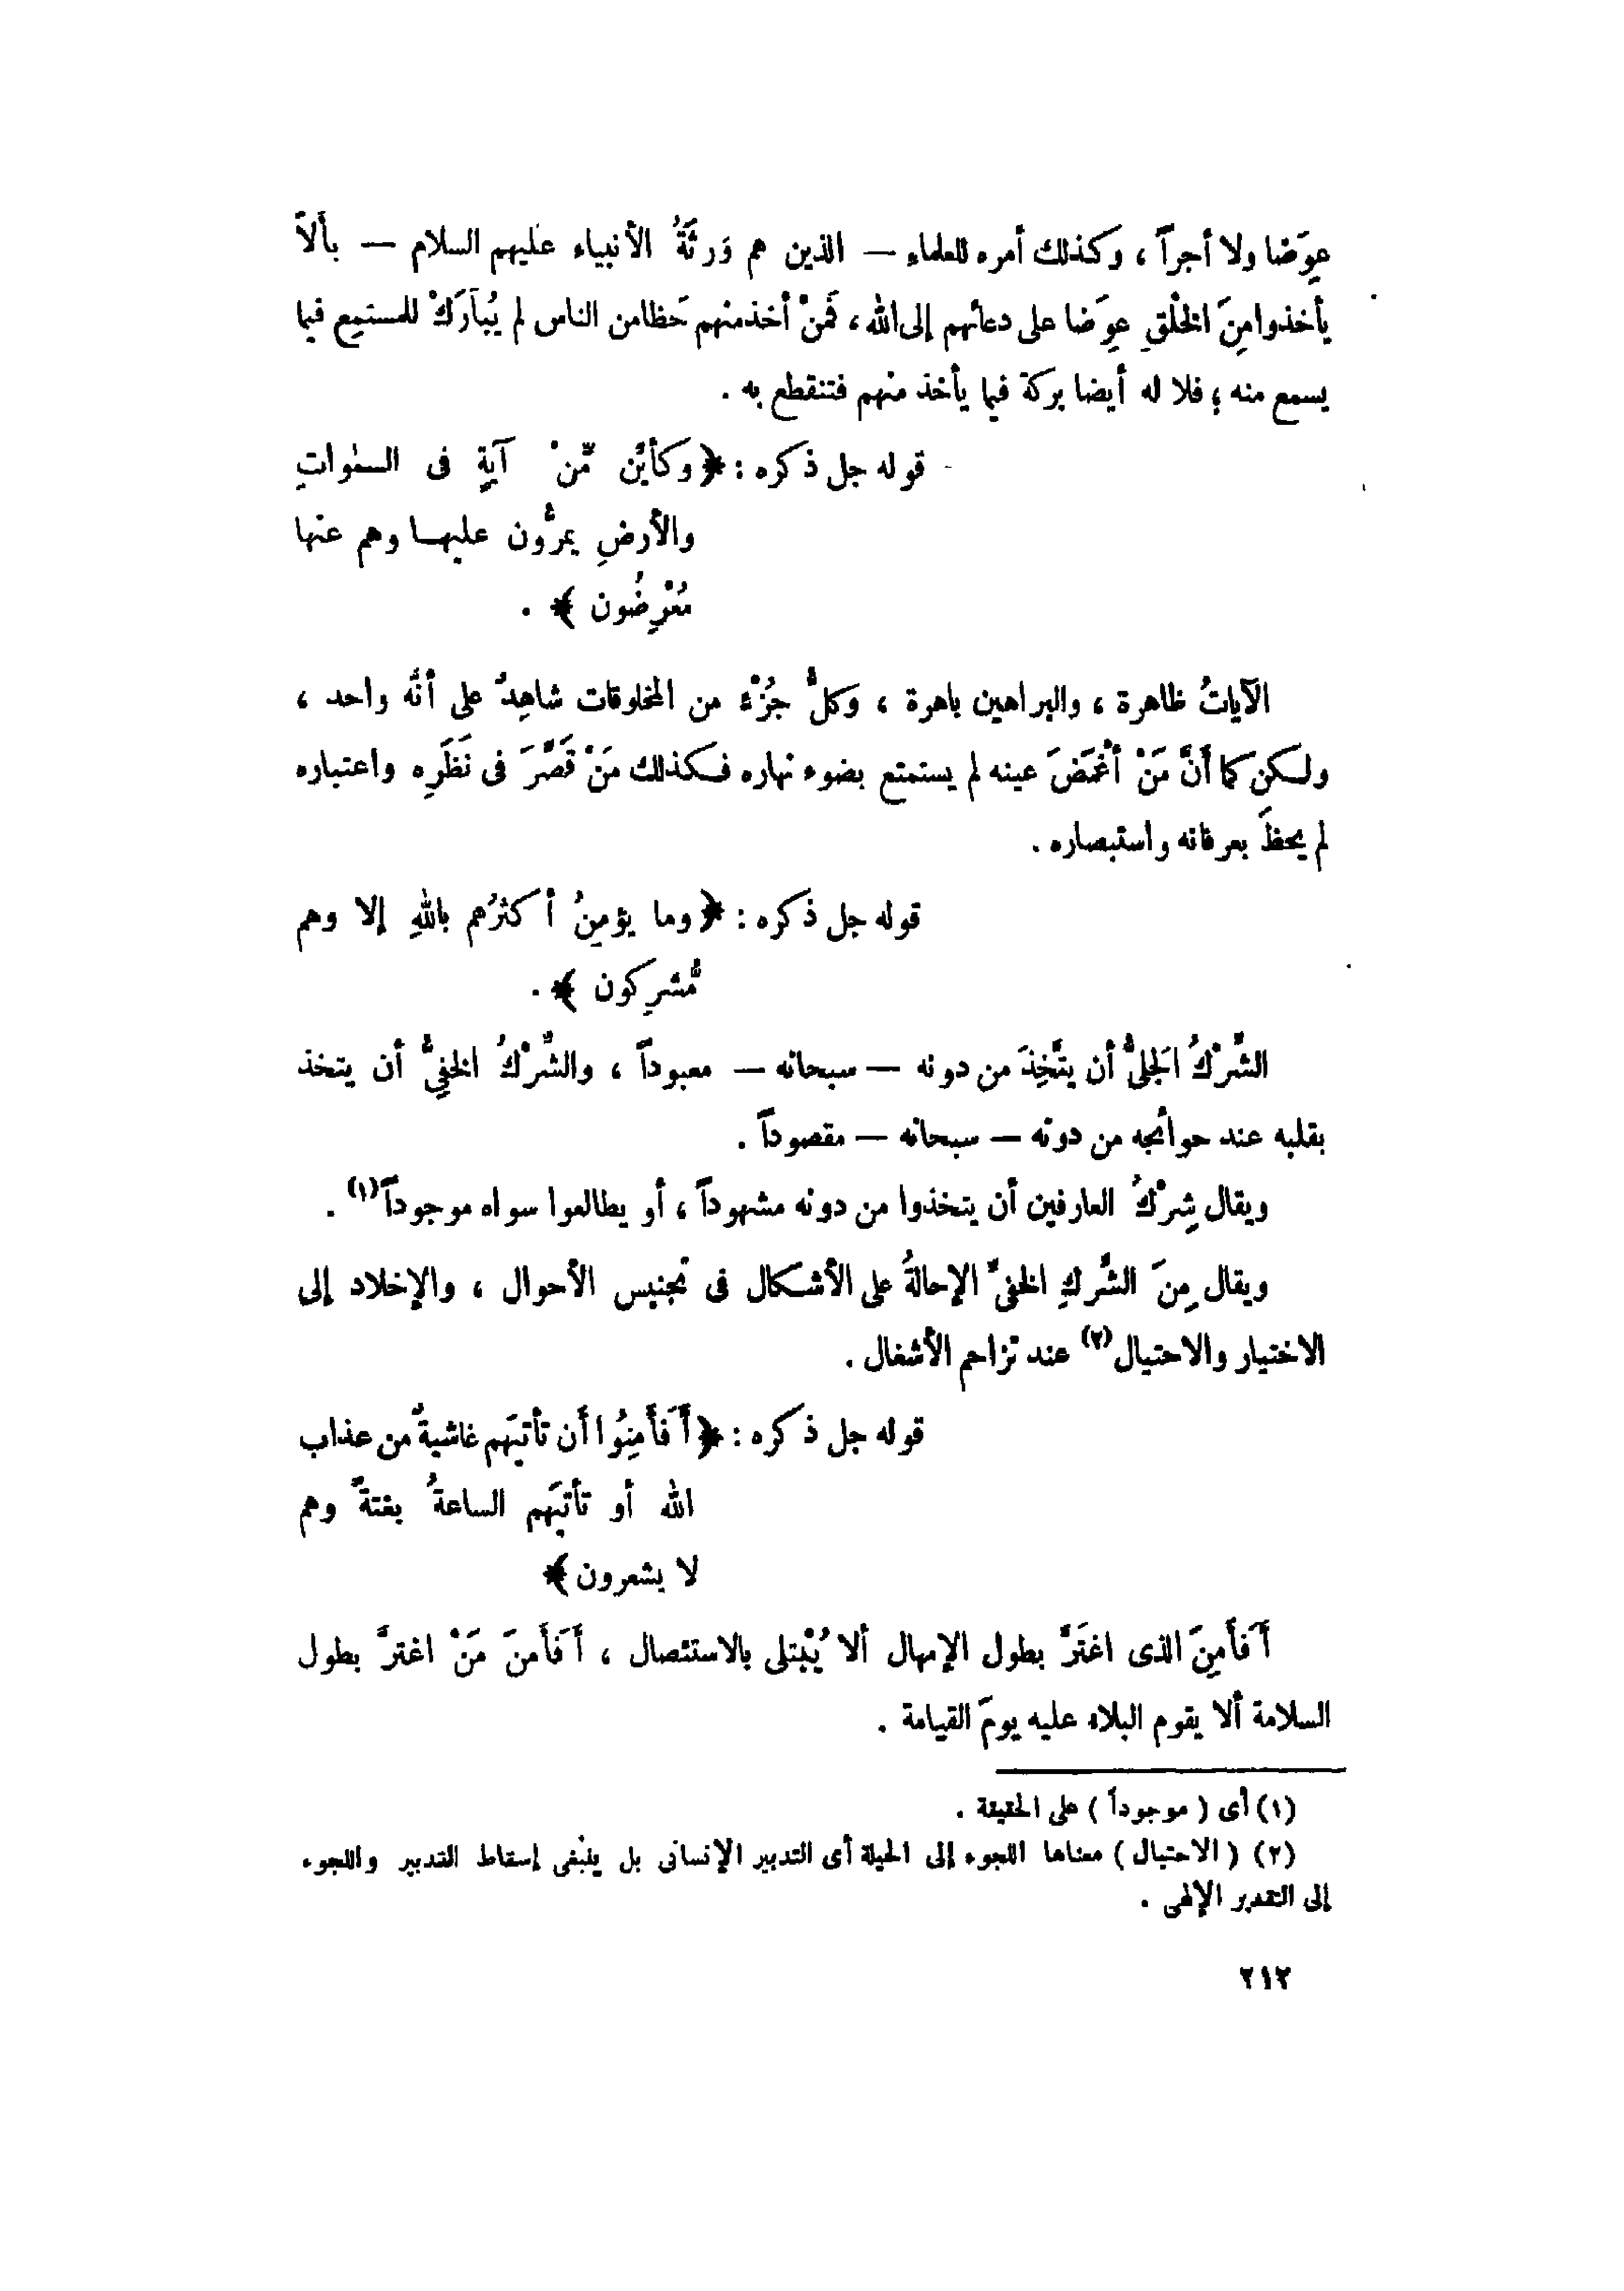 عِوَضا ولا أجراً ، وكذلك أمره للعلماء — الذين هم وَرثَةُ الأنبياء عليهم السلام — بألاَّ
يأخذوا مِنَ الخْلْقِ عِوَضا على دعائهم إلى الله ، فَمنْ أخذ منهم حَظا من الناس لم يُبارَكْ للمستمِع فيما
يسمع منه ؛ فلا له أيضا بركة فيما يأخذ منهم فتنقطع به .
قوله جل ذكره : ﴿ وكأيِّن مِّنْ آيةٍ فى السمٰواتِ
والأرضِ يمرُّون عليهــا وهم عنها
مُعْرِضُون ﴾ .
الآياتُ ظاهرة ، والبراهين باهرة ، وكلُّ جُزْءٍ من المخلوقات شاهِدٌ على أنَّه واحد ،
ولـكن كما أَنَّ مَنْ أغْمَضَ عينه لم يستمتع بضوء نهاره فـكذلك مَنْ قَصَّرَ فى نَظَرِه واعتباره
لم يحظَ بعرفانه واستبصاره .
قوله جل ذكره : ﴿ وما يؤمِنُ أكثرُهم باللهِ إلا وهم
مُّشرِكون ﴾ .
الشِّرْكُ الَجليُّ أن يتَّخِذَ من دونه — سبحانه — معبوداً ، والشِّرْكُ الخفِيُّ أن يتخذ
بقلبه عند حوائجه من دونه — سبحانه — مقصوداً .
ويقال شِرْكُ العارفين أن يتخذوا من دونه مشهوداً ، أو يطالعوا سواه موجوداً(١) .
ويقال مِنَ الشِّركِ الخفىِّ الإحالةُ على الأشـكال فى تجنيس الأحوال ، والإخلاد إلى
الاختيار والاحتيال(٢) عند تزاحم الأشغال .
قوله جل ذكره : ﴿ أَفأَمِنُوا أَن تأتيَهم غاشيةٌ من عذاب
الله أو تأتيَهم الساعةُ بغتةً وهم
لا يشعرون ﴾
أَفأَمِنَ الذى اغتَرَّ بطول الإمهال ألا يُبْتلى بالاستئصال ، أَفأَمنَ مَنْ اغترَّ بطول
السلامة ألا يقوم البلاء عليه يومَ القيامة .
(١) أى ( موجوداً ) على الحقيقة .
(٢) ( الاحتيال ) معناها اللجوء إلى الحيلة أى التدبير الإنسانى بل ينبغى إسقاط التدبير واللجوء
إلى التقدير الإلهى .
٢١٢